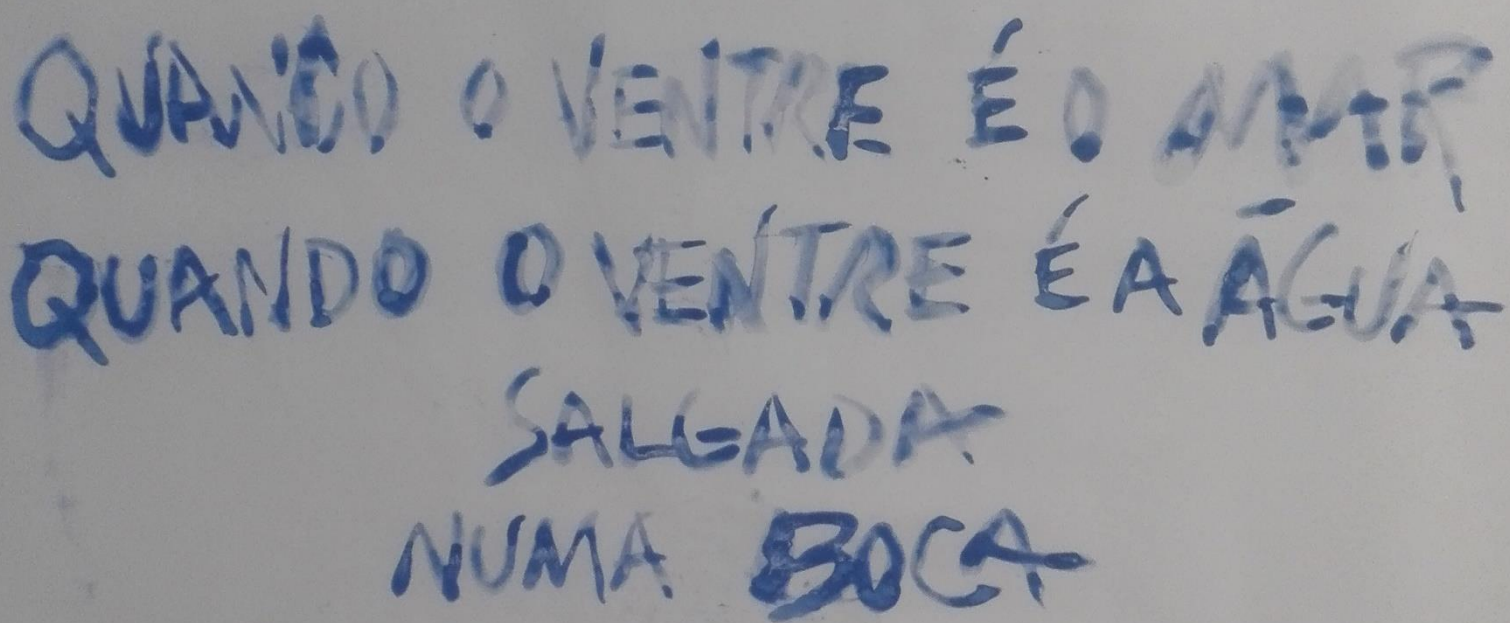 QUANDO O VENTRE É O MAR
QUANDO O VENTRE É A ÁGUA
SALGADA
NUMA BOCA